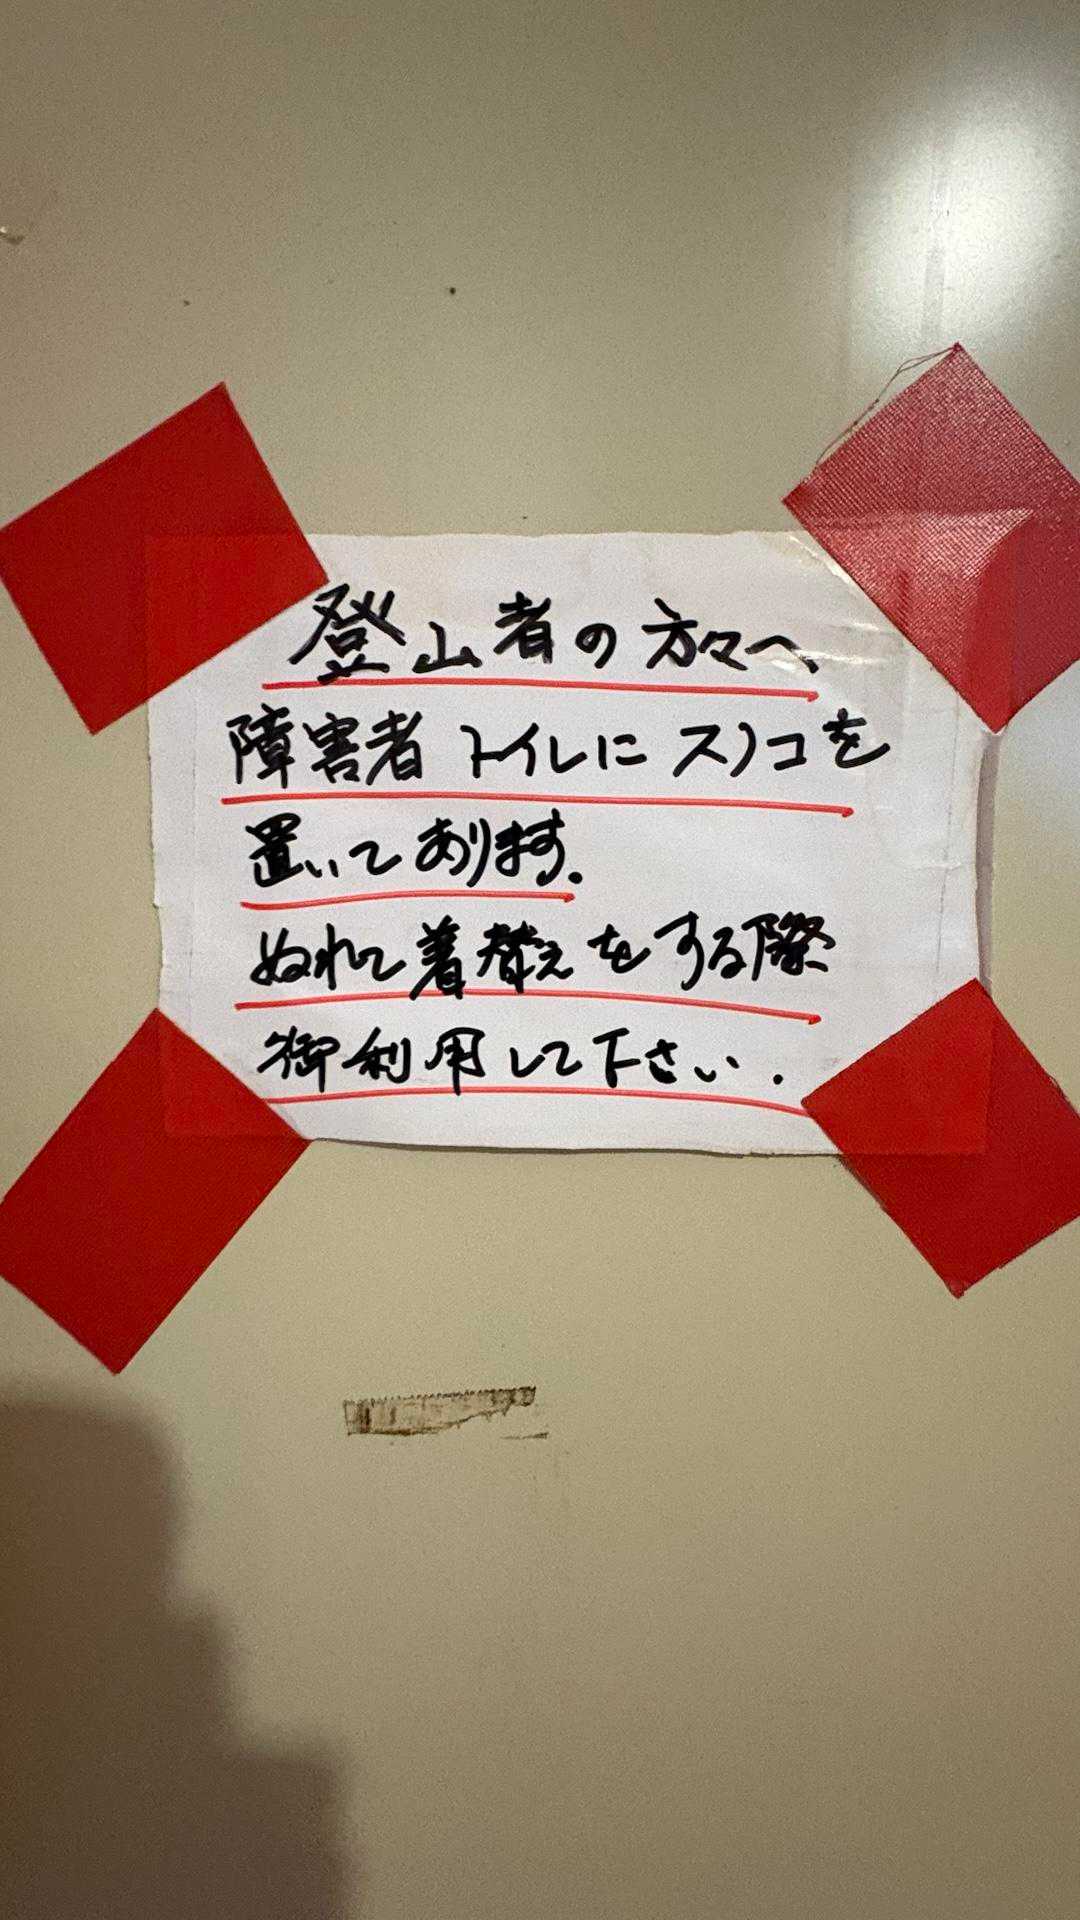 登山者の方々へ、
障害者トイレにスノコを
置いてあります.
ぬれて着替えをする際
御利用して下さい.